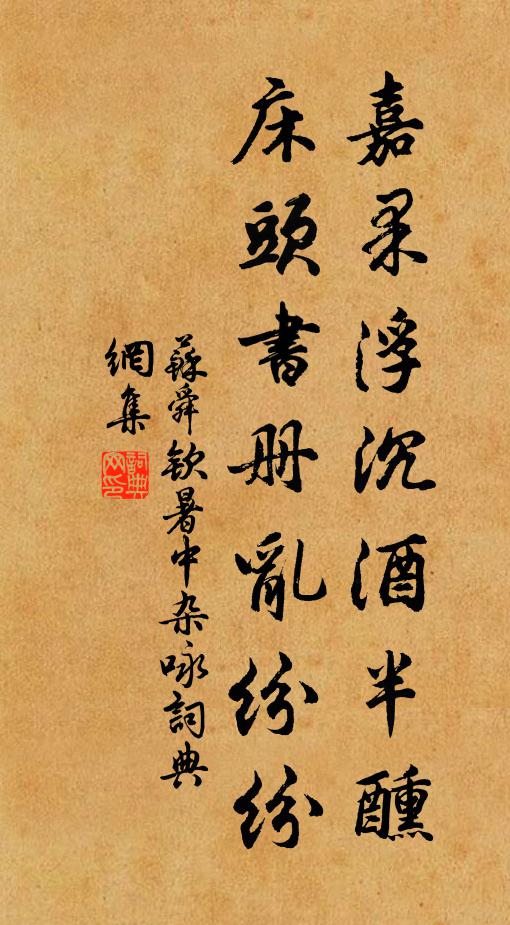 嘉果浮沉酒半醺
床頭書册亂紛紛
蘇舜欽暑中杂咏詞典
網集
詞典网印